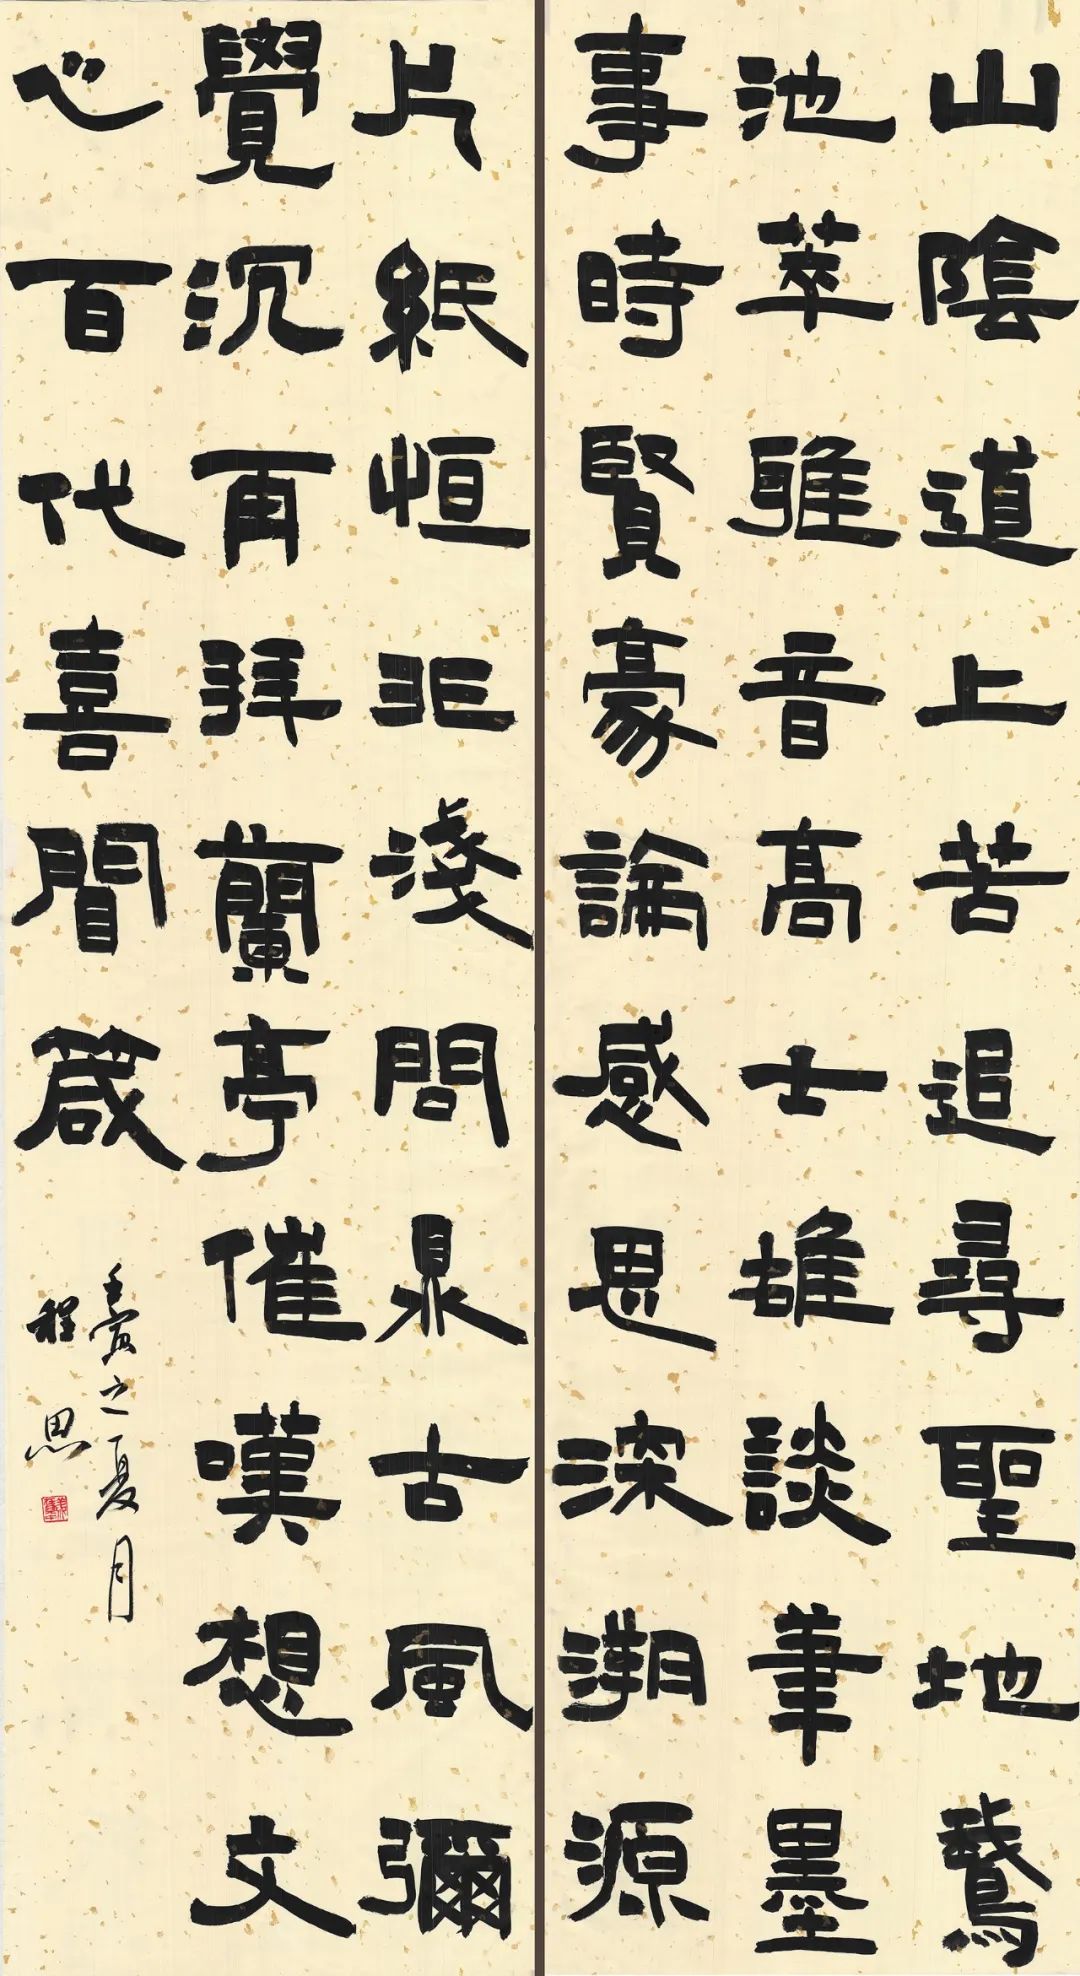 山陰道上苦追尋聖地鵞
池萃雅音高士雄談筆墨
事時賢豪論感思深溯源
片紙恒非淺問泉古風彌
覺沉再拜蘭亭催嘆想文
心百代喜閒箴
壬寅之夏月
程思